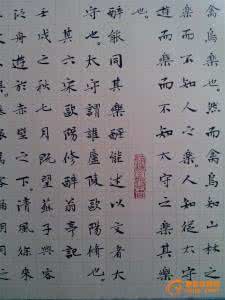 禽鳥樂也然而禽鳥知山林之
樂而不知人之樂人知從太守
遊而樂而不知太守之樂其樂
也。
醉能同其樂醒能述以文者太
守也。太守謂誰廬陵歐陽脩也。
其六宋歐陽修醉翁亭記
壬戌之秋七月既望蘇子
舟遊於之下。清風徐來